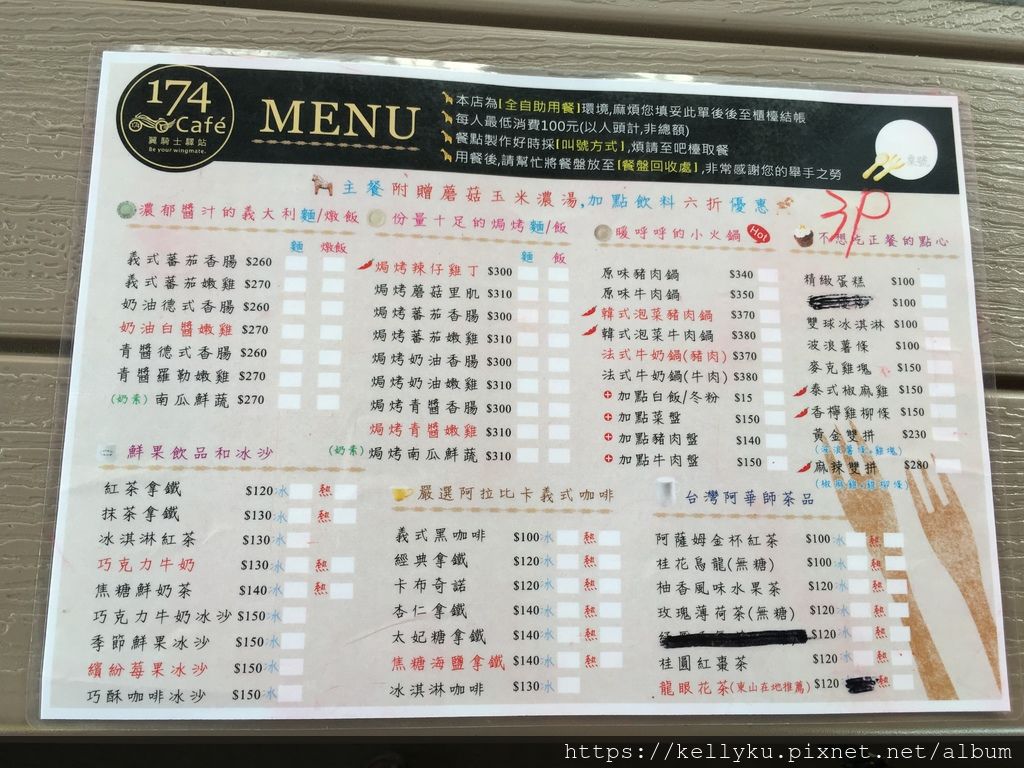 174
Café
翼騎士驛站
Be your wingmate.
MENU
本店為【全自助用餐】環境,麻煩您填妥此單後後至櫃檯結帳
每人最低消費100元(以人頭計,非總額)
餐點製作好時採【叫號方式】,煩請至吧檯取餐
用餐後,請幫忙將餐盤放至【餐盤回收處】,非常感謝您的舉手之勞
桌號
3P
主餐附贈蘑菇玉米濃湯,加點飲料六折優惠
濃郁醬汁的義大利麵/燉飯
麵 燉飯
義式番茄香腸 $260
義式番茄嫩雞 $270
奶油德式香腸 $260
奶油白醬嫩雞 $270
青醬德式香腸 $260
青醬羅勒嫩雞 $270
(奶素)南瓜鮮蔬 $270
份量十足的焗烤麵/飯
麵 飯
焗烤辣仔雞丁 $300
焗烤蘑菇里肌 $310
焗烤番茄香腸 $300
焗烤番茄嫩雞 $310
焗烤奶油香腸 $300
焗烤奶油嫩雞 $310
焗烤青醬香腸 $300
焗烤青醬嫩雞 $310
(奶素)焗烤南瓜鮮蔬 $310
暖呼呼的小火鍋 Hot
原味豬肉鍋 $340
原味牛肉鍋 $350
韓式泡菜豬肉鍋 $370
韓式泡菜牛肉鍋 $380
法式牛奶鍋(豬肉) $370
法式牛奶鍋(牛肉) $380
加點白飯/冬粉 $15
加點菜盤 $150
加點豬肉盤 $140
加點牛肉盤 $150
不想吃正餐的點心
精緻蛋糕 $100
$100
雙球冰淇淋 $100
波浪薯條 $100
麥克雞塊 $150
泰式椒麻雞 $150
香檸雞柳條 $150
黃金雙拼 $230
(波浪薯條.雞塊)
麻辣雙拼 $280
(椒麻雞.雞柳條)
鮮果飲品和冰沙
紅茶拿鐵 $120 冰 熱
抹茶拿鐵 $130 冰 熱
冰淇淋紅茶 $130 冰
巧克力牛奶 $130 冰 熱
焦糖鮮奶茶 $140 冰 熱
巧克力牛奶冰沙 $150 冰
季節鮮果冰沙 $150 冰
繽紛莓果冰沙 $150 冰
巧酥咖啡冰沙 $150 冰
嚴選阿拉比卡義式咖啡
義式黑咖啡 $100 冰 熱
經典拿鐵 $120 冰 熱
卡布奇諾 $120 冰 熱
杏仁拿鐵 $140 冰 熱
太妃糖拿鐵 $140 冰 熱
焦糖海鹽拿鐵 $140 冰 熱
冰淇淋咖啡 $130 冰
台灣阿華師茶品
阿薩姆金杯紅茶 $100 冰 熱
桂花烏龍(無糖) $100 冰 熱
柚香風味水果茶 $120 冰 熱
玫瑰薄荷茶(無糖) $120 冰 熱
$120 冰 熱
桂圓紅棗茶 $120 冰 熱
龍眼花茶(東山在地推薦) $120 熱
https://kellyku.pixnet.net/album